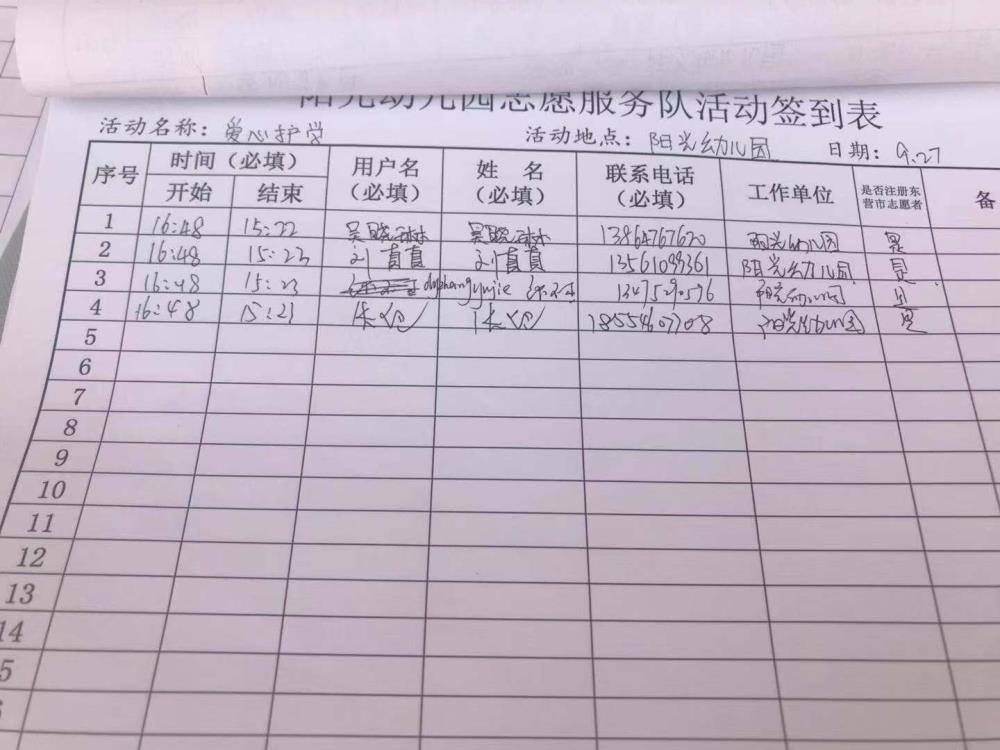 阳光幼儿园志愿服务队活动签到表
活动名称：爱心护学 活动地点：阳光幼儿园 日期：9.27
序号 时间（必填） 用户名（必填） 姓 名（必填） 联系电话（必填） 工作单位 是否注册东营市志愿者 备
开始 结束
1 16:48 15:22 吴晓琳 吴晓琳 13864767620 阳光幼儿园 是
2 16:48 15:23 刘真真 刘真真 13561099361 阳光幼儿园 是
3 16:48 15:23 阳光幼儿园 是
4 16:48 15:21 18554607708 阳光幼儿园 是
5
6
7
8
9
10
11
12
13
14
5